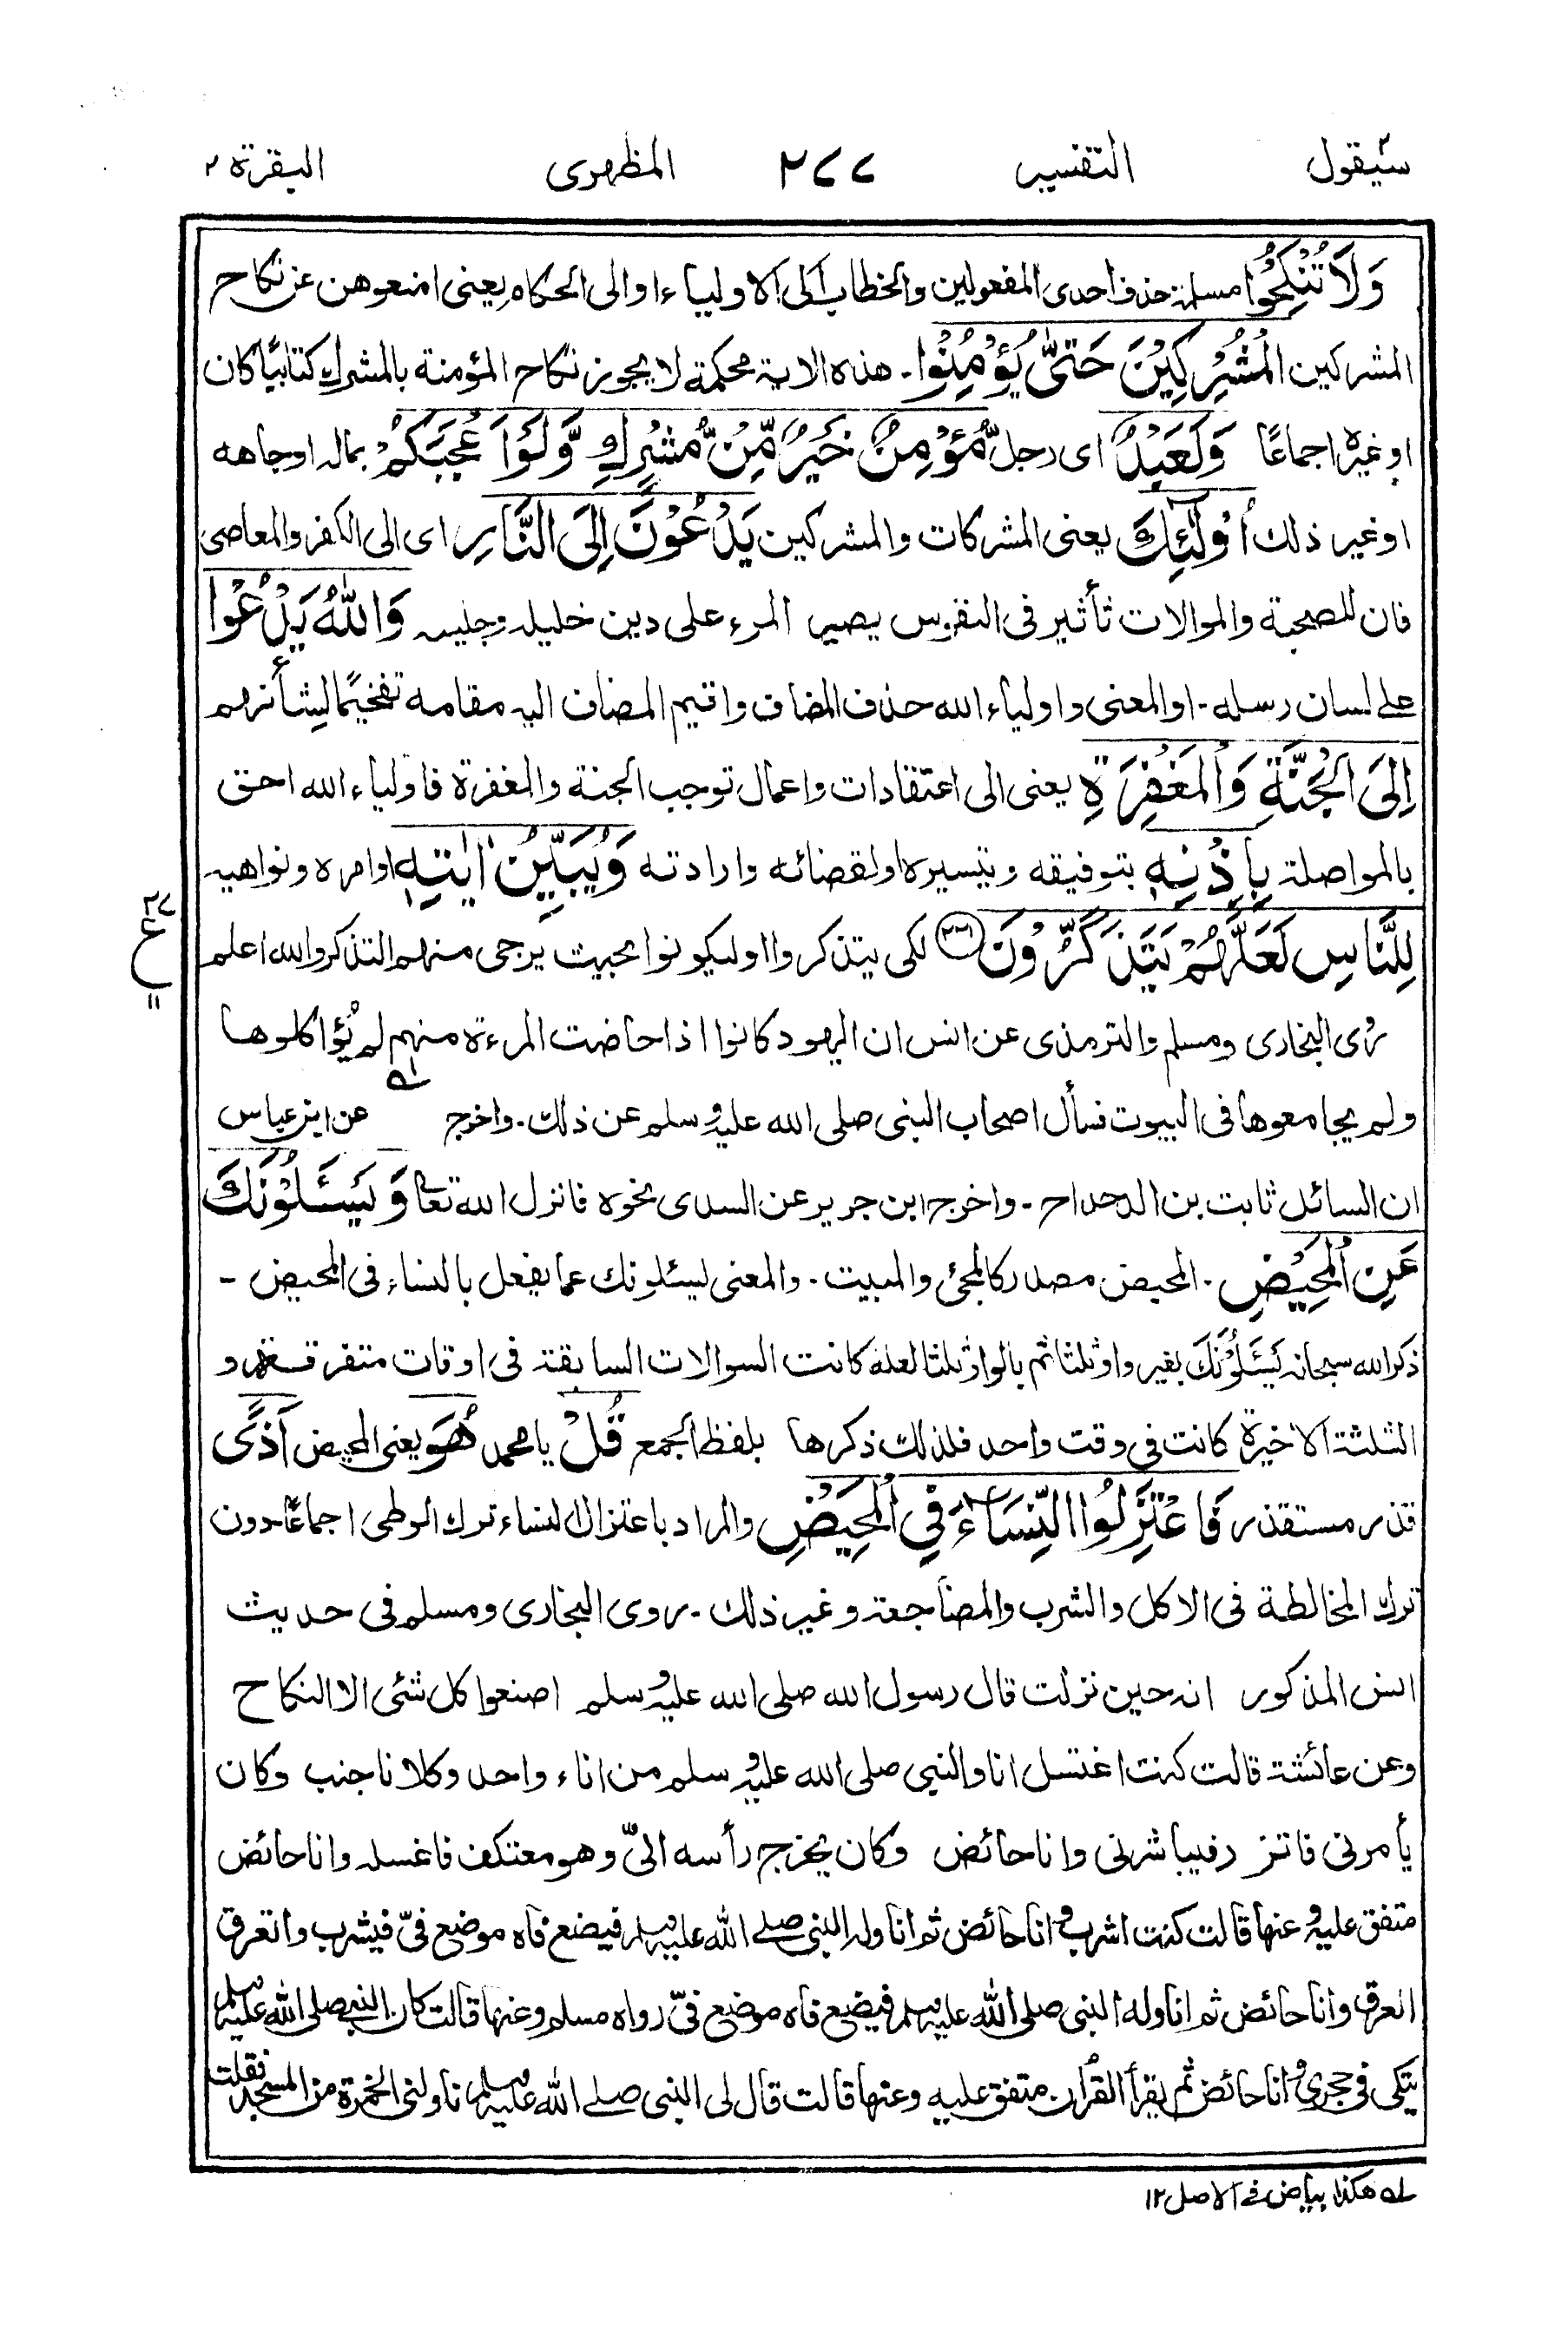 سيقول التفسير ٢٧٧ المظهرى البقرة ٢
وَلَا تُنْكِحُوا مسلمة حذف احدى المفعولين والخطاب الى الاولياء او الى الحكام يعنى امنعوهن عن نكاح
المشركين الْمُشْرِكِيْنَ حَتّٰى يُؤْمِنُوْا ـ هذه الاية محكمة لا يجوز نكاح المؤمنة بالمشرك كتابيًا كان
او غيره اجماعًا وَلَعَبْدٌ اى رجل مُّؤْمِنٌ خَيْرٌ مِّنْ مُّشْرِكٍ وَّلَوْ اَعْجَبَكُمْ بماله او جاهه
او غير ذلك اُولٰٓئِكَ يعنى المشركات والمشركين يَدْعُوْنَ اِلَى النَّارِ اى الى الكفر والمعاصى
فان للصحبة والموالات تأثير فى النفوس يصير المرء على دين خليله وجليسه وَاللّٰهُ يَدْعُوْا
على لسان رسله ـ او المعنى واولياء الله حذف المضاف واقيم المضاف اليه مقامه تفخيمًا لشأنهم
اِلَى الْجَنَّةِ وَالْمَغْفِرَةِ يعنى الى اعتقادات واعمال توجب الجنة والمغفرة فاولياء الله احق
بالمواصلة بِاِذْنِهٖ بتوفيقه وتيسيره او لقضائه وارادته وَيُبَيِّنُ اٰيٰتِهٖ اوامره ونواهيه
لِلنَّاسِ لَعَلَّهُمْ يَتَذَكَّرُوْنَ ﴿٢٢١﴾ لكى يتذكروا او ليكونوا بحيث يرجى منهم التذكر والله اعلم
٢٧
ع
١١
روى البخارى ومسلم والترمذى عن انس ان اليهود كانوا اذا حاضت المرءة منهم لم يُؤاكلوها
ولم يجامعوها فى البيوت فسأل اصحاب النبى صلى الله عليه وسلم عن ذلك ـ واخرج له عن ابن عباس
ان السائل ثابت بن الدحداح ـ واخرج ابن جرير عن السدى نحوه فانزل الله تعالى وَيَسْئَلُوْنَكَ
عَنِ الْمَحِيْضِ ـ المحيض مصدر كالمجئ والمبيت ـ والمعنى ليسئلونك عما يفعل بالنساء فى المحيض ـ
ذكر الله سبحانه يَسْئَلُوْنَكَ بغير واو ثلثا ثم بالواو ثلثا لعله كانت السوالات السابقة فى اوقات متفرقة و
الثلثة الاخيرة كانت فى وقت واحد فلذلك ذكرها بلفظ الجمع قُلْ يا محمد هُوَ يعنى المحيض اَذًى
قذر مستقذر فَاعْتَزِلُوا النِّسَآءَ فِى الْمَحِيْضِ والمراد باعتزال النساء ترك الوطى اجماعًا دون
ترك المخالطة فى الاكل والشرب والمضاجعة وغير ذلك ـ روى البخارى ومسلم فى حديث
انس المذكور انه حين نزلت قال رسول الله صلى الله عليه وسلم اصنعوا كل شئى الا النكاح
وعن عائشة قالت كنت اغتسل انا والنبى صلى الله عليه وسلم من اناء واحد وكلانا جنب وكان
يأمرنى فاتزر فيباشرنى وانا حائض وكان يخرج رأسه الىّ وهو معتكف فاغسله وانا حائض
متفق عليه وعنها قالت كنت اشرب وانا حائض ثم اناوله النبى صلى الله عليه وسلم فيضع فاه موضع فىّ فيشرب واتعرق
العرق وانا حائض ثم اناوله النبى صلى الله عليه وسلم فيضع فاه موضع فىّ رواه مسلم وعنها قالت كان النبى صلى الله عليه وسلم
يتكى فى حجرى وانا حائض ثم يقرأ القرأن متفق عليه وعنها قالت قال لى النبى صلى الله عليه وسلم ناولنى الخمرة من المسجد فقلت
له هكذا بياض فى الاصل ١٢